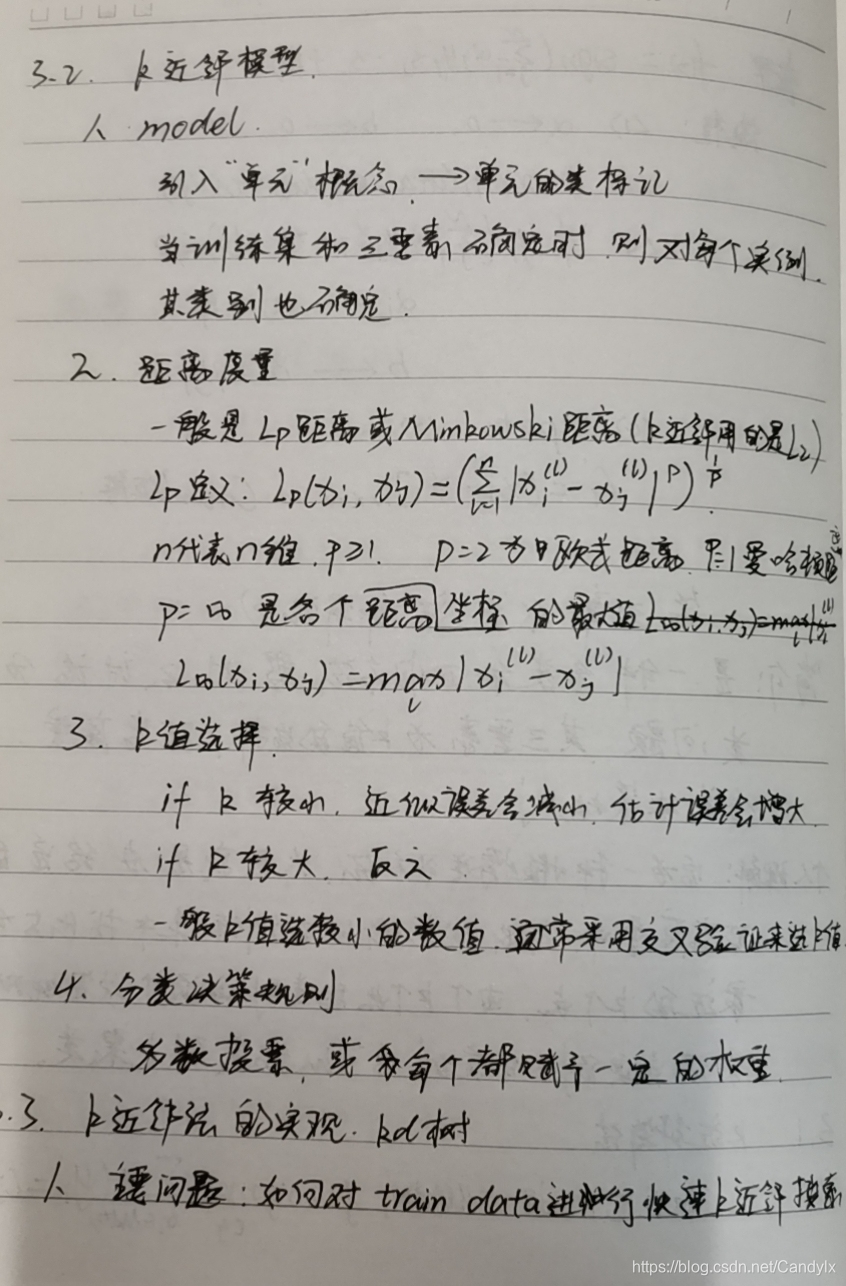 3.2. k近邻模型.
1. model.
引入"单元"概念. →单元的类标记
当训练集和三要素确定时,则对每个实例.
其类别也确定.
2. 距离度量
一般是Lp距离或Minkowski距离(k近邻用的是L₂)
Lp定义: Lp(xi, xj) = (∑_{l=1}^{n} |xi^(l) − xj^(l)|^p)^{1/p}.
n代表n维. P≥1. P=2为欧式距离. P=1曼哈顿距
P=∞ 是各个距离坐标的最大值 L∞(xi, xj)=max|
L∞(xi, xj) = max_l |xi^(l) − xj^(l)|
3. k值选择.
if k较小. 近似误差会减小, 估计误差会增大.
if k较大. 反之.
一般k值选较小的数值. 通常采用交叉验证来选k值.
4. 分类决策规则
多数投票, 或 每个都赋予一定的权重.
.3. k近邻法的实现. kd树
1. 主要问题: 如何对train data进行快速k近邻搜索
https://blog.csdn.net/Candylx